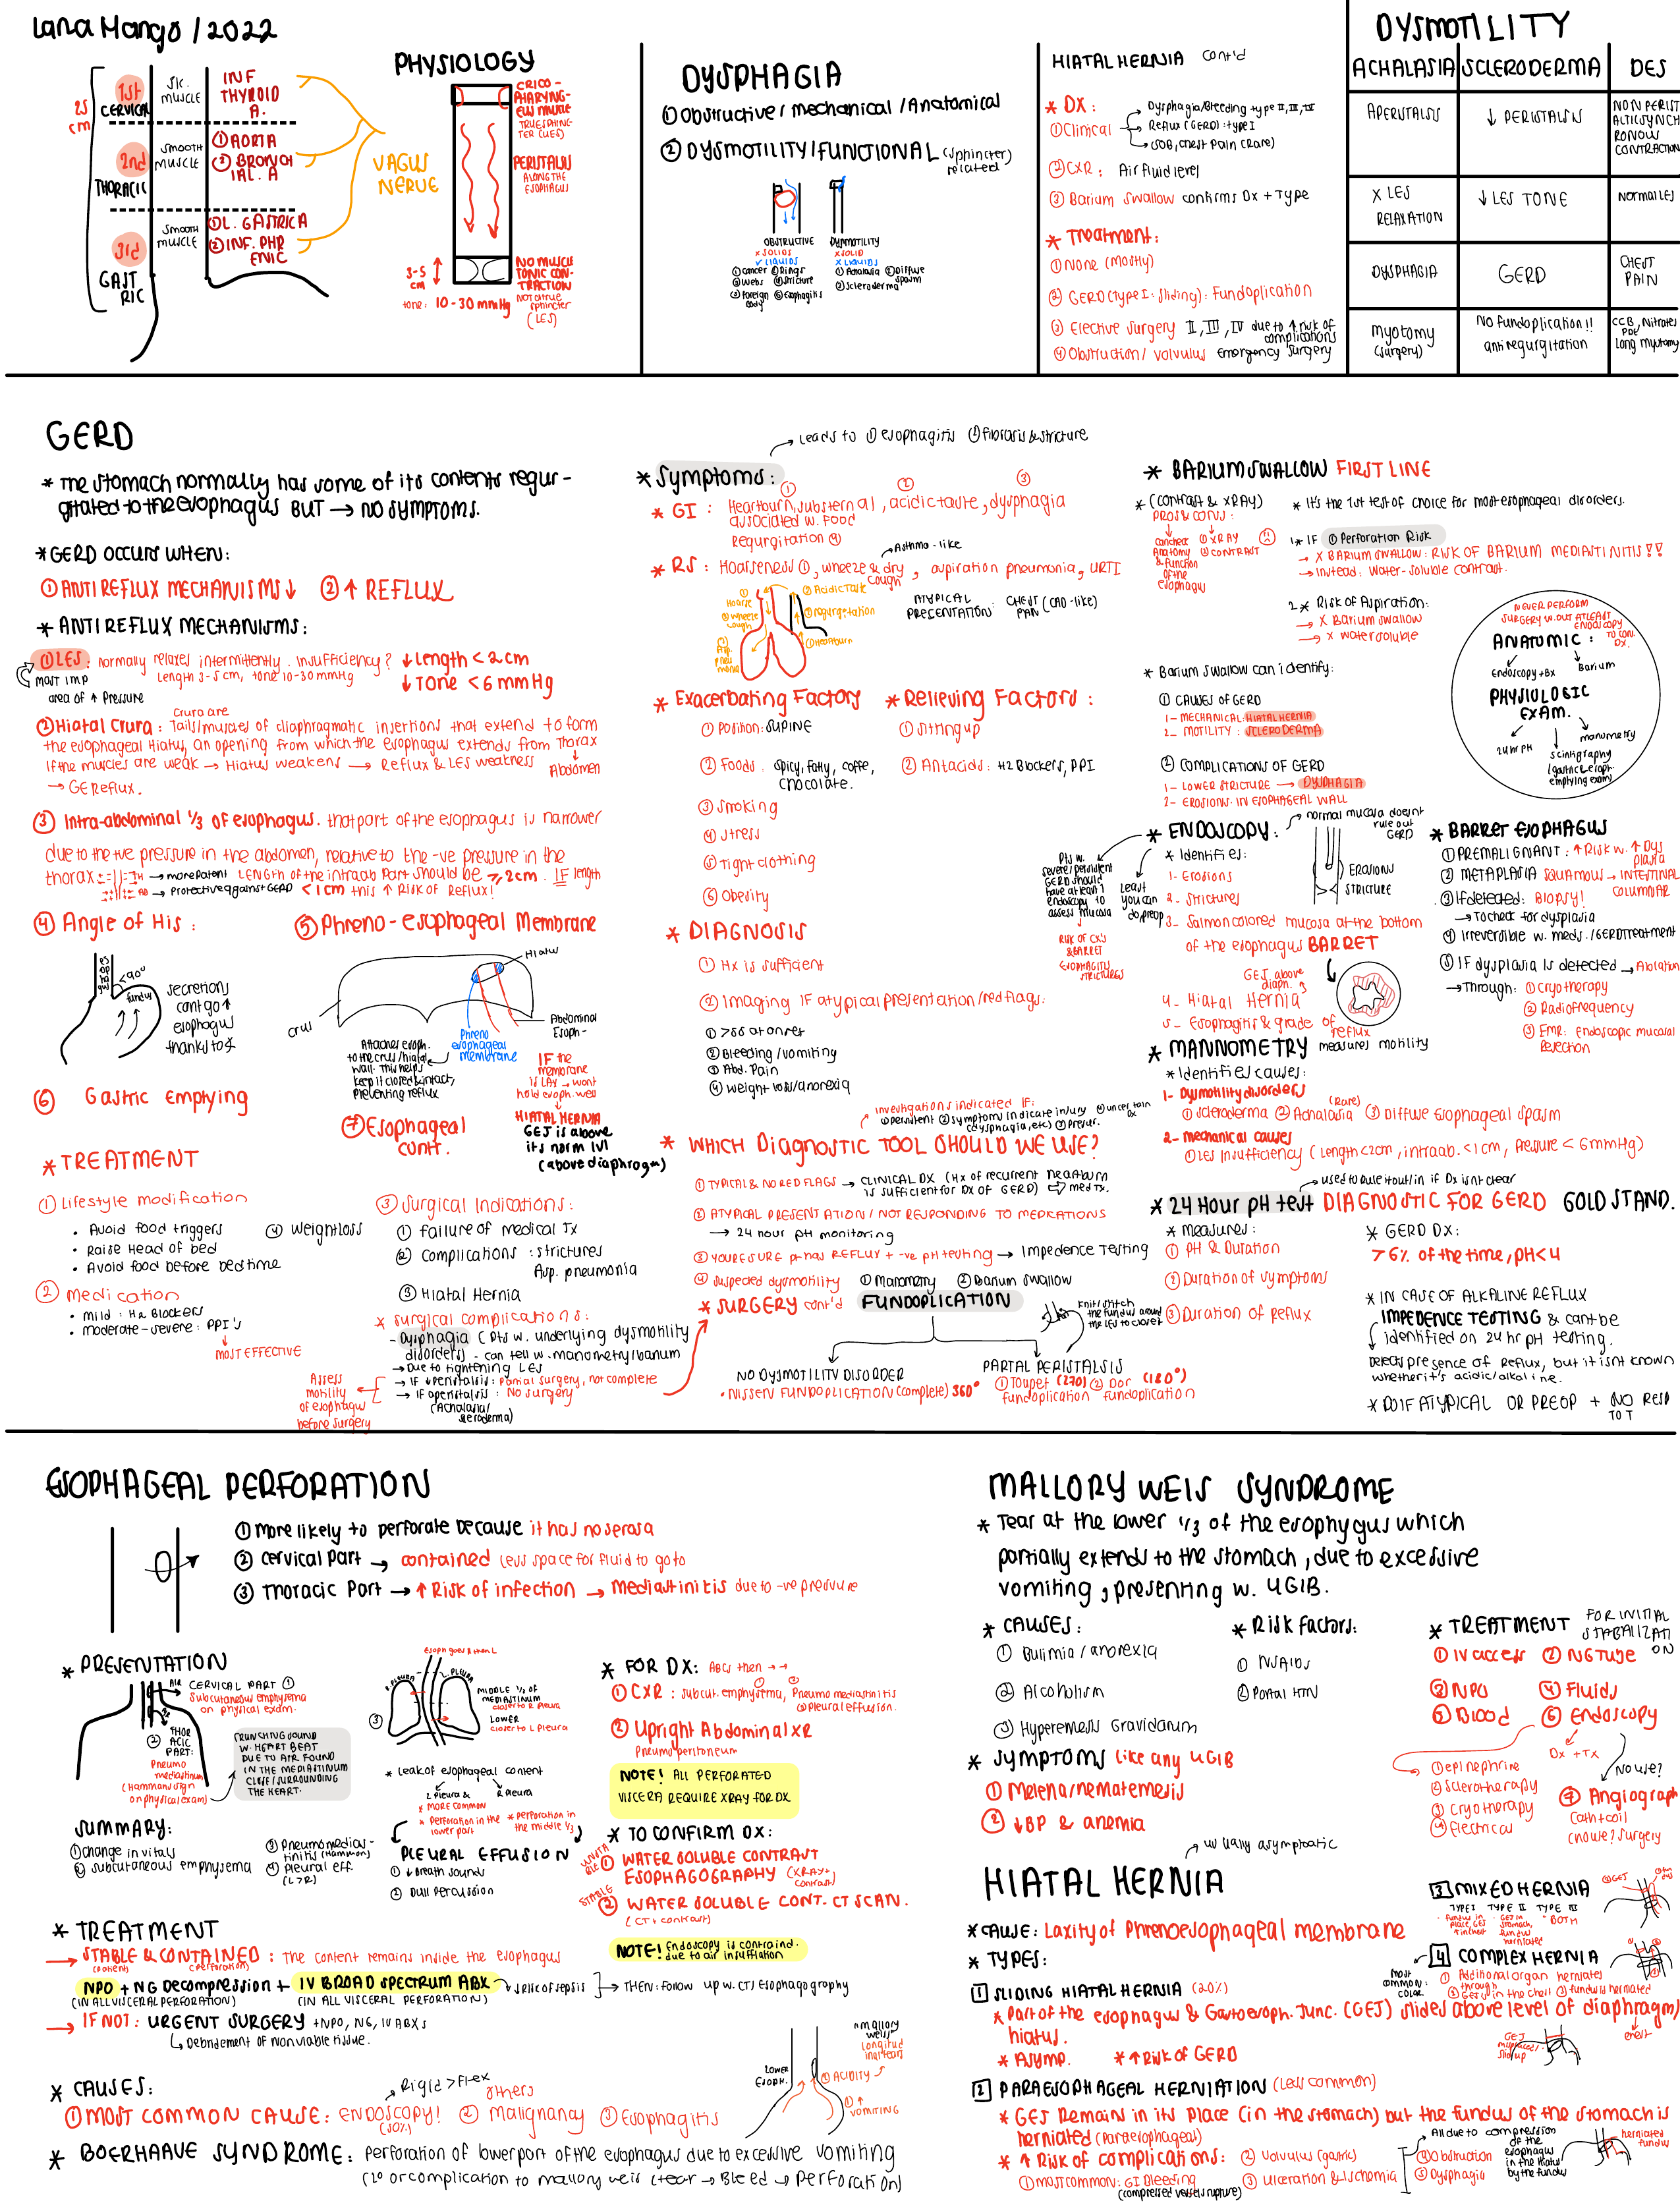 Lana Mango / 2022
25 cm
1st
CERVICAL
SK. MUSCLE
INF THYROID A.
2nd
THORACIC
SMOOTH MUSCLE
① AORTA
② BRONCHIAL. A
3rd
GASTRIC
SMOOTH MUSCLE
① L. GASTRICA
② INF. PHRENIC
VAGUS NERVE
PHYSIOLOGY
CRICO-PHARYNG-EUS MUSCLE
TRUE SPHINCTER (UES)
PERISTALSIS
ALONG THE ESOPHAGUS
3-5 cm
tone: 10-30 mmHg
NO MUSCLE TONIC CONTRACTION
NOT A TRUE sphincter (LES)
DYSPHAGIA
① Obstructive / mechanical / Anatomical
② DYSMOTILITY / FUNCTIONAL (sphincter) related
OBSTRUCTIVE
x SOLIDS
✓ LIQUIDS
① Cancer ④ Rings
② Webs ⑤ Stricture
③ Foreign body ⑥ Esophagitis
DYSMOTILITY
x SOLID
x LIQUIDS
① Achalasia ③ Diffuse spasm
② Scleroderma
HIATAL HERNIA cont'd
* DX:
① Clinical
→ Dysphagia/Bleeding type II, III, IV
→ Reflux (GERD): type I
→ SOB, chest pain (Rare)
② CXR: Air fluid level
③ Barium Swallow confirms Dx + Type
* Treatment:
① None (mostly)
② GERD (type I: sliding): Fundoplication
③ Elective surgery II, III, IV due to ↑ risk of complications
④ Obstruction / volvulus emergency surgery
DYSMOTILITY
ACHALASIA SCLERODERMA DES
APERISTALSIS ↓ PERISTALSIS NON PERISTALTIC SYNCHRONOUS CONTRACTION
X LES RELAXATION ↓ LES TONE Normal LES
DYSPHAGIA GERD CHEST PAIN
myotomy (surgery) No fundoplication!! antiregurgitation CCB, Nitrates PDE long myotomy
GERD
* The stomach normally has some of its contents regur-
gitated to the esophagus BUT → NO SYMPTOMS.
* GERD OCCURS WHEN:
① ANTI REFLUX MECHANISMS ↓ ② ↑ REFLUX
* ANTI REFLUX MECHANISMS:
① LES: normally relaxes intermittently. Insufficiency? ↓ Length < 2 cm
Length 3-5 cm, tone 10-30 mmHg ↓ Tone < 6 mmHg
most imp
area of ↑ pressure
② Hiatal Crura: Crura are Tails/muscles of diaphragmatic insertions that extend to form
the esophageal Hiatus, an opening from which the esophagus extends from Thorax ↓ Abdomen
If the muscles are weak → Hiatus weakens → Reflux & LES weakness
→ GE Reflux.
③ Intra-abdominal 1/3 of esophagus. that part of the esophagus is narrower
due to the +ve pressure in the abdomen, relative to the -ve pressure in the
thorax → more patent LENGTH of the intraab part should be ≥ 2cm. IF length
→ Protective against GERD < 1 cm this ↑ Risk of Reflux!
④ Angle of His:
<90°
fundus
secretions cant go ↑ esophagus thanks to
⑤ Phreno-esophageal Membrane
Hiatus
crus
Phreno esophageal membrane
Abdominal Esoph-
Attaches esoph. to the crus/hiatal wall. This helps keep it closed & intact, preventing reflux
IF the membrane is LAX → wont hold esoph. well
↓
HIATAL HERNIA
GEJ is above its norm lvl (above diaphragm)
⑥ Gastric Emptying
⑦ Esophageal contr.
* TREATMENT
① Lifestyle modification
• Avoid food triggers ④ weightloss
• Raise Head of bed
• Avoid food before bedtime
② Medication
• Mild: H2 Blockers
• Moderate-severe: PPI's
MOST EFFECTIVE
③ Surgical Indications:
① failure of medical Tx
② complications: strictures
Asp. pneumonia
③ Hiatal Hernia
* Surgical complications:
- Dysphagia (Pts w. underlying dysmotility
disorders) - can tell w. manometry/barium
→ Due to tightening LES
→ IF ↓ peristalsis: Partial surgery, not complete
→ IF aperistalsis: No surgery
(Achalasia/scleroderma)
Assess motility of esophagus before surgery
→ Leads to ① esophagitis ② fibrosis & stricture
* Symptoms:
* GI: Heartburn, substernal ①, acidic taste ②, dysphagia ③
associated w. food
Regurgitation ④
* RS: Hoarseness ①, wheeze & dry cough, aspiration pneumonia, URTI
Asthma-like
ATYPICAL PRESENTATION: CHEST PAIN (CAD-like)
① Hoarse
② wheeze cough
③ Asp. pneumonia
③ Acidic taste
② regurgitation
① Heartburn
* Exacerbating Factors
① Position: SUPINE
② Foods: spicy, fatty, coffe, chocolate.
③ Smoking
④ Stress
⑤ Tight clothing
⑥ Obesity
* Relieving Factors:
① Sitting up
② Antacids: H2 Blockers, PPI
* DIAGNOSIS
① Hx is sufficient
② Imaging IF atypical presentation/red flags:
① >55 at onset
② Bleeding/vomiting
③ Abd. Pain
④ Weight loss/anorexia
investigations indicated IF:
① persistent ② symptoms indicate injury (dysphagia, etc) ③ presur. ④ uncertain Dx
* WHICH Diagnostic TOOL SHOULD WE USE?
① TYPICAL & NO RED FLAGS → CLINICAL DX (Hx of recurrent heartburn
is sufficient for DX of GERD) ⇨ med Tx.
② ATYPICAL PRESENTATION / NOT RESPONDING TO MEDICATIONS
→ 24 hour pH monitoring
③ YOURE SURE pt HAS REFLUX + -ve pH testing → Impedence Testing
④ suspected dysmotility ① Manometry ② Barium swallow
* SURGERY cont'd FUNDOPLICATION
knit/stitch the fundus around the LES to close it
NO DYSMOTILITY DISORDER
• NISSEN FUNDOPLICATION (complete) 360°
PARTAL PERISTALSIS
① Toupet (270) ② Dor (180°)
fundoplication fundoplication
* BARIUM SWALLOW FIRST LINE
* (CONTRAST & XRAY) * It's the 1st test of choice for most esophageal disorders.
PROS & CONS:
can check Anatomy & function of the esophagus
① XRAY
② CONTRAST
1* IF ① Perforation Risk
→ X BARIUM SWALLOW: RISK OF BARIUM MEDIASTINITIS!!
→ Instead: Water-soluble contrast.
2* Risk of Aspiration:
→ X Barium swallow
→ X water soluble
* Barium swallow can identify:
① CAUSES OF GERD
1- MECHANICAL: HIATAL HERNIA
2- MOTILITY: SCLERODERMA
② COMPLICATIONS OF GERD
1- LOWER STRICTURE → DYSPHAGIA
2- EROSIONS IN ESOPHAGEAL WALL
NEVER PERFORM SURGERY W. OUT AT LEAST ENDOSCOPY TO CON. DX.
ANATOMIC:
Endoscopy + Bx
Barium
PHYSIOLOGIC EXAM.
24 hr pH
scintigraphy (gastric & esoph. emptying exam)
manometry
* ENDOSCOPY: → normal mucosa doesnt rule out GERD
* Identifies:
1- Erosions
2- Strictures
3- Salmon colored mucosa at the bottom
of the esophagus BARRET
4- Hiatal Hernia
GEJ above diaph.
5- Esophagitis & grade of reflux
EROSIONS
STRICTURE
Pts w. severe/persistent GERD should have at least 1 endoscopy to assess mucosa
↓
RISK OF CX's & BARRET
ESOPHAGITIS STRICTURES
Least you can do, preop
* BARRET ESOPHAGUS
① PREMALIGNANT: ↑ Risk w. ↑ Dysplasia
② METAPLASIA squamous → INTESTINAL COLUMNAR
③ If detected: Biopsy!
→ To check for dysplasia
④ Irreversible w. meds./GERD treatment
⑤ IF dysplasia is detected → Ablation
→ Through: ① Cryotherapy
② Radiofrequency
③ EMR: Endoscopic mucosal Resection
* MANNOMETRY measures motility
* Identifies causes:
1- Dysmotility disorders
① Scleroderma ② Achalasia (Rare) ③ Diffuse Esophageal spasm
2- Mechanical causes
① Les Insufficiency (Length <2cm, intraab. <1cm, Pressure < 6mmHg)
→ used to rule it out/in if Dx isnt clear
* 24 Hour pH test DIAGNOSTIC FOR GERD GOLD STAND.
* Measures:
① PH & Duration
② Duration of symptoms
③ Duration of reflux
* GERD DX:
> 6% of the time, pH < 4
* IN CASE OF ALKALINE REFLUX
IMPEDENCE TESTING & cant be
identified on 24 hr pH testing.
Detects presence of Reflux, but it isnt known
whether it's acidic/alkaline.
* DO IF ATYPICAL OR PREOP + NO RESP TO T
ESOPHAGEAL PERFORATION
① More likely to perforate because it has no serosa
② Cervical Part → contained Less space for fluid to go to
③ Thoracic Part → ↑ Risk of infection → Mediastinitis due to -ve pressure
* PRESENTATION
AIR
CERVICAL PART ①
Subcutaneous emphysema on physical exam.
② THORACIC PART:
Pneumo mediastinum (Hammans sign on physical exam)
CRUNCHING SOUND W. HEART BEAT DUE TO AIR FOUND IN THE MEDIASTINUM CLOSE/SURROUNDING THE HEART.
SUMMARY:
① Change in vitals
② subcutaneous emphysema
③ Pneumomedias-tinitis (Hammon)
④ Pleural eff. (L>R)
Esoph goes R then L
R. PLEURA
L. PLEURA
③
MIDDLE 1/3 OF MEDIASTINUM
closer to R Pleura
LOWER
closer to L Pleura
* Leak of esophageal content
L Pleura & R Pleura
* MORE COMMON
* Perforation in the lower part
* perforation in the middle 1/3
PLEURAL EFFUSION
① ↓ Breath sounds
② Dull Percussion
* FOR DX: ABCs then →
① CXR: ① subcut. emphysema, ② Pneumo mediastinitis
③ Pleural effusion.
② Upright Abdominal XR
Pneumoperitoneum
NOTE! ALL PERFORATED
VISCERA REQUIRE XRAY FOR DX
* TO CONFIRM DX:
UNSTABLE ① WATER SOLUBLE CONTRAST
ESOPHAGOGRAPHY (XRAY + contrast)
STABLE ② WATER SOLUBLE CONT. CT SCAN.
(CT + contrast)
NOTE! Endoscopy is contraind. due to air insufflation
* TREATMENT
→ STABLE & CONTAINED: The content remains inside the esophagus
(patient) (perforation)
NPO + NG Decompression + IV BROAD SPECTRUM ABX ↓ risk of sepsis → THEN: Follow up w. CT/Esophagography
(IN ALL VISCERAL PERFORATION) (IN ALL VISCERAL PERFORATION)
→ IF NOT: URGENT SURGERY + NPO, NG, IV ABXs
↳ Debridement of nonviable tissue.
* CAUSES:
→ Rigid > Flex
① MOST COMMON CAUSE: ENDOSCOPY! (50%) others ② Malignancy ③ Esophagitis
* BOERHAAVE SYNDROME: Perforation of lower part of the esophagus due to excessive vomiting
(2° or complication to mallory weis (tear → Bleed → perforation)
LOWER ESOPH.
② ACIDITY
① ↑ VOMITING
mallory weiss
Longitudinal tears
MALLORY WEIS SYNDROME
* Tear at the lower 1/3 of the esophygus which
partially extends to the stomach, due to excessive
vomiting, presenting w. UGIB.
* CAUSES:
① Bulimia / anorexia
② Alcoholism
③ Hyperemesis Gravidarum
* Risk factors:
① NSAIDs
② Portal HTN
* SYMPTOMS like any UGIB
① Melena/hematemesis
② ↓BP & anemia
* TREATMENT FOR INITIAL STABALIZATION
① IV access ② NG Tube
③ NPO ④ Fluids
⑤ Blood ⑥ Endoscopy
DX + TX
① epinephrine
② Sclerotherapy
③ Cryotherapy
④ Electrical
No use?
⑦ Angiograph
Cath + coil
(no use? surgery
→ usually asymptoatic
HIATAL HERNIA
* CAUSE: Laxity of Phrenoesophageal membrane
* TYPES:
1 SLIDING HIATAL HERNIA (20%)
* Part of the esophagus & Gastroesoph. Junc. (GEJ) slides above level of diaphragm/
hiatus.
chest
* Asymp. * ↑ Risk of GERD
2 PARAESOPHAGEAL HERNIATION (Less common)
* GEJ Remains in its place (in the stomach) but the fundus of the stomach is
herniated (Paraesophageal)
* ↑ Risk of complications:
① most common: GI Bleeding
(compressed vessels rupture)
② Volvulus (gastric)
③ Ulceration & Ischemia
④ Obstruction
⑤ Dysphagia
→ All due to compression of the esophagus in the hiatus by the fundus
herniated fundus
3 MIXED HERNIA
TYPE I TYPE II TYPE III
fundus in place, GEJ in chest
GEJ in stomach, fundus herniated
BOTH
4 COMPLEX HERNIA
MOST COMMON: COLON.
① Additional organ herniates through
② GEJ in the chest ③ fundus is herniated